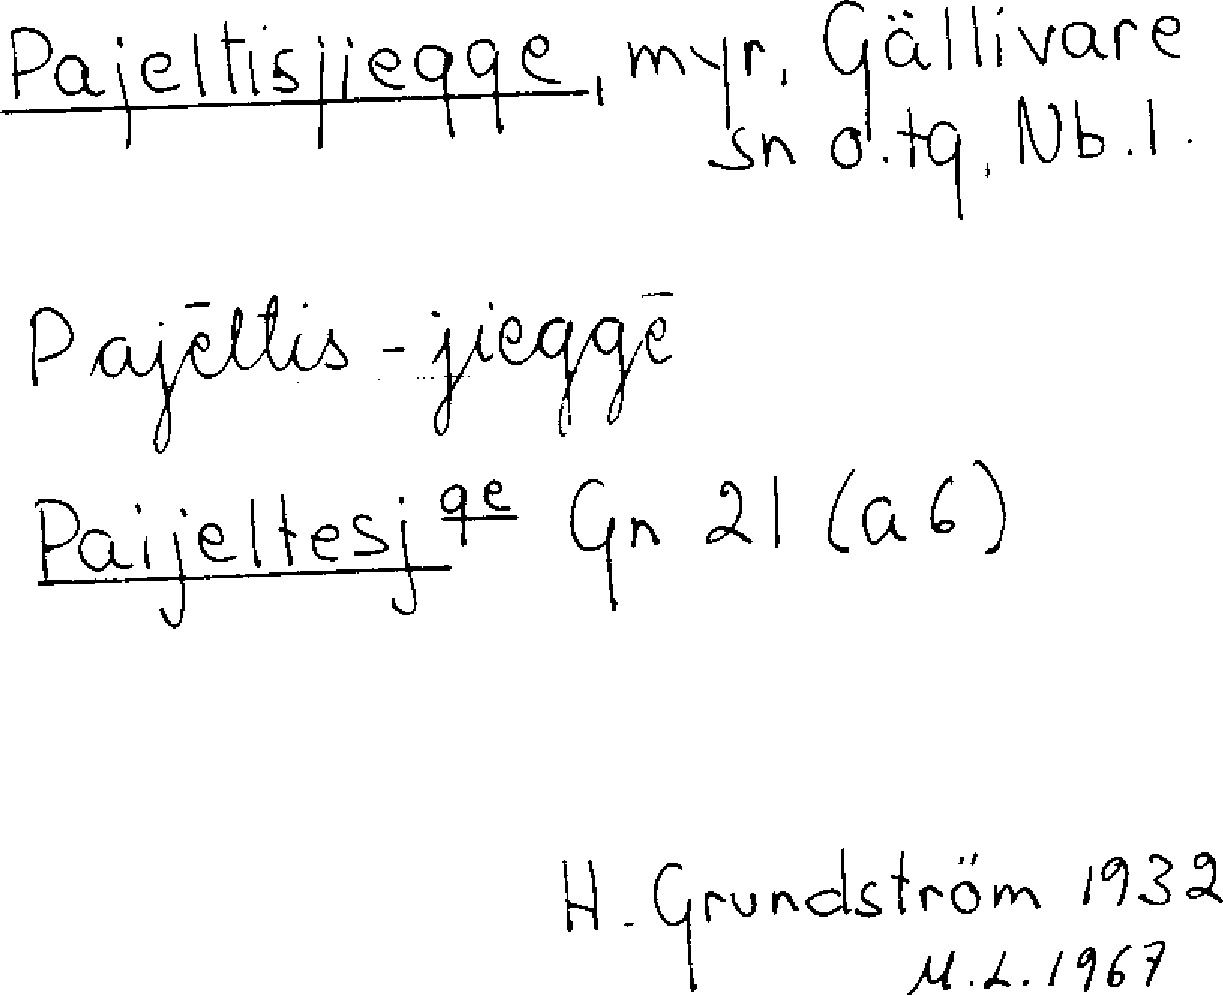 Pajeltisjiegge, myr, Gällivare
sn o. tg, Nb. l.
Pajēltis-jieggē
Paijeltesj ge Gn 21 (a6)
H. Grundström 1932
M.L. 1967